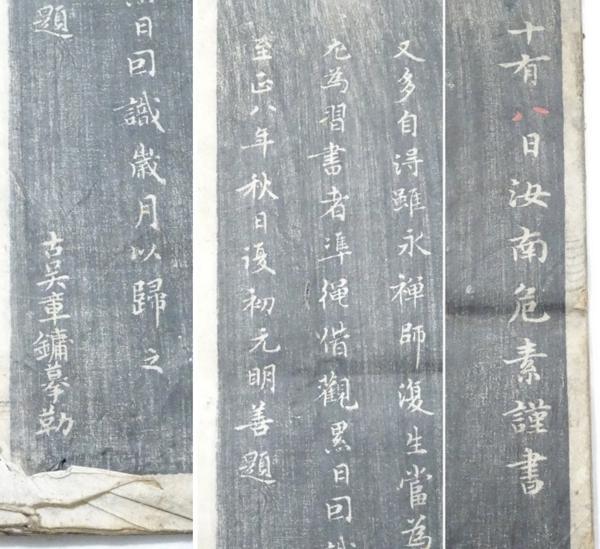 十有八日汝南危素謹書
又多自淂雖永禪師復生當為
尤為習書者準繩借觀累日回
至正八年秋日復初元明善題
日回識嵗月以歸之
題
古吴章鏞摹勒